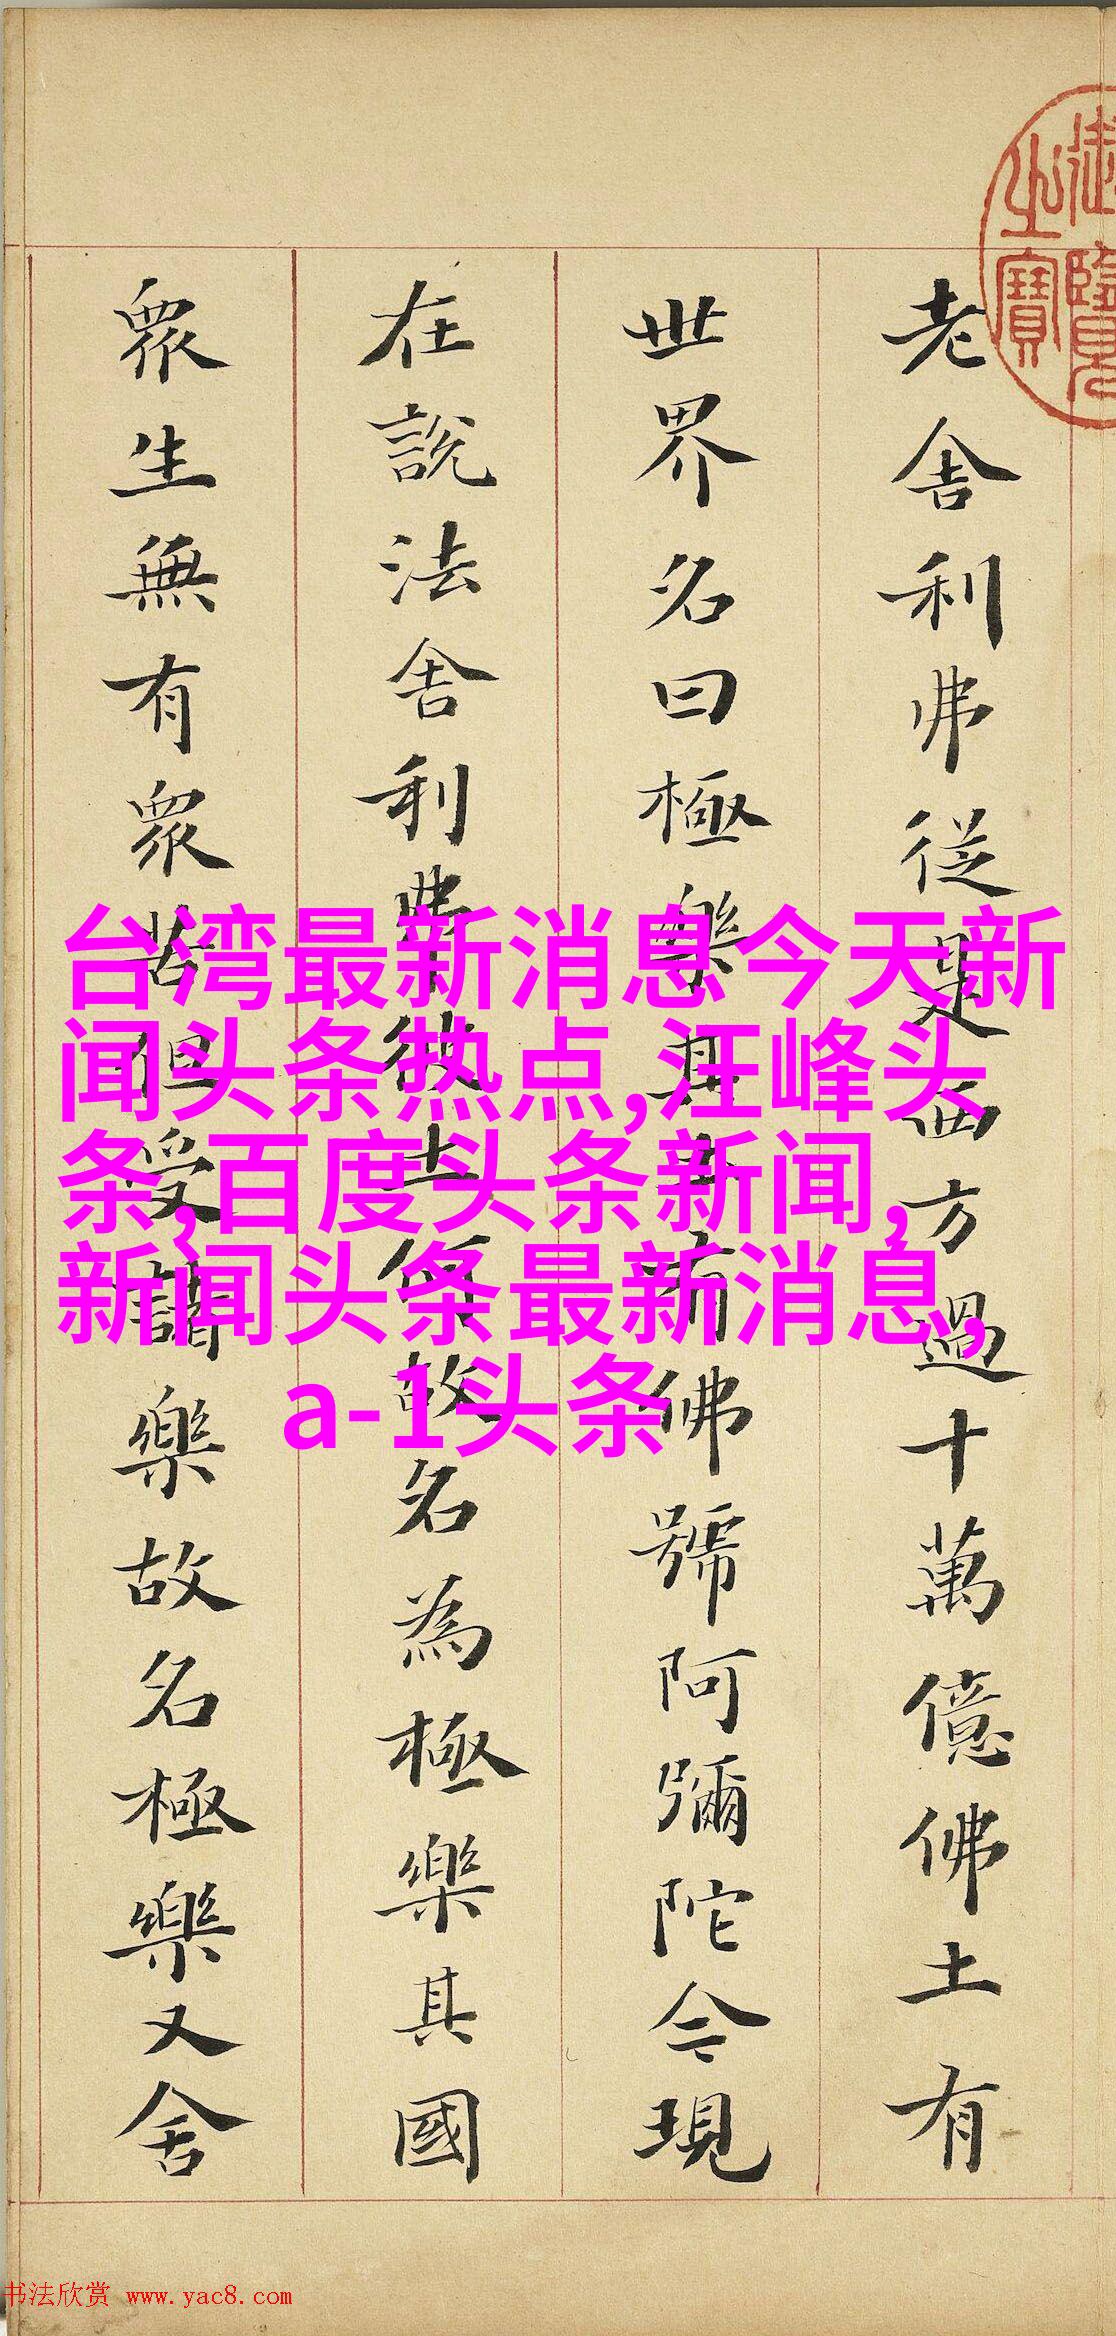 御覽
之寶
老舍利弗從是西方過十萬億佛土有
世界名曰極樂其土有佛號阿彌陀今現
在說法舍利弗彼土何故名為極樂其國
眾生無有眾苦但受諸樂故名極樂又舍
台湾最新消息今天新
闻头条热点,汪峰头
条,百度头条新闻,
新闻头条最新消息,
a-1头条
书法欣赏 www.yac8.com